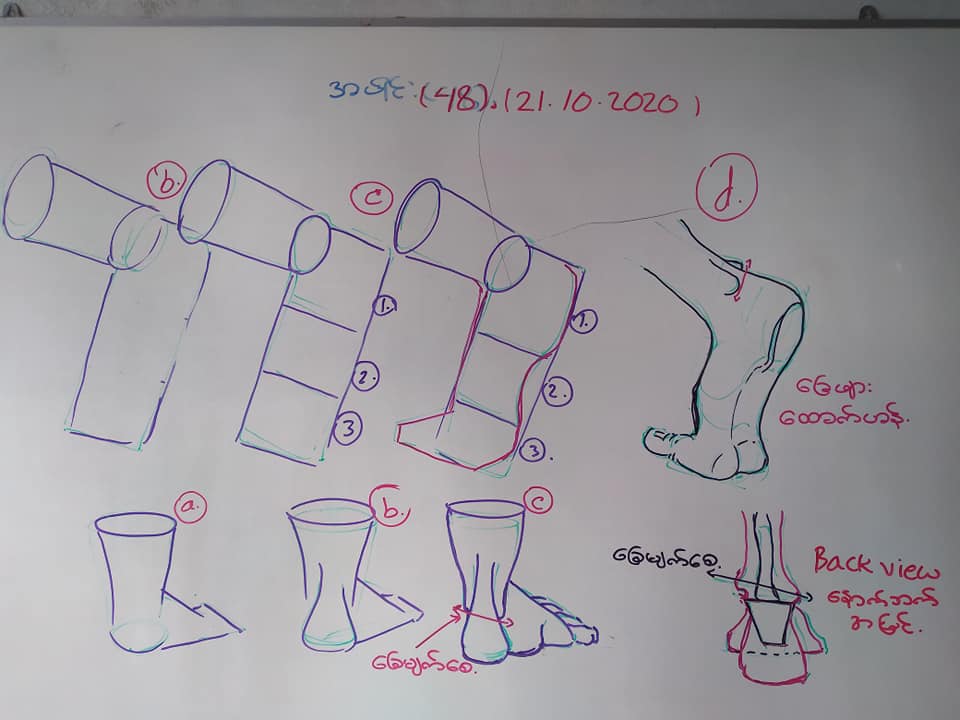 အပိုင်း (48). (21.10.2020)
b.
c
d.
1.
2.
3
1.
2.
3.
ခြေဖျား
ထောက်ဟန်.
a.
b.
c
ခြေမျက်စေ့.
ခြေမျက်စေ့.
Back view
နောက်ဘက်
အမြင်.